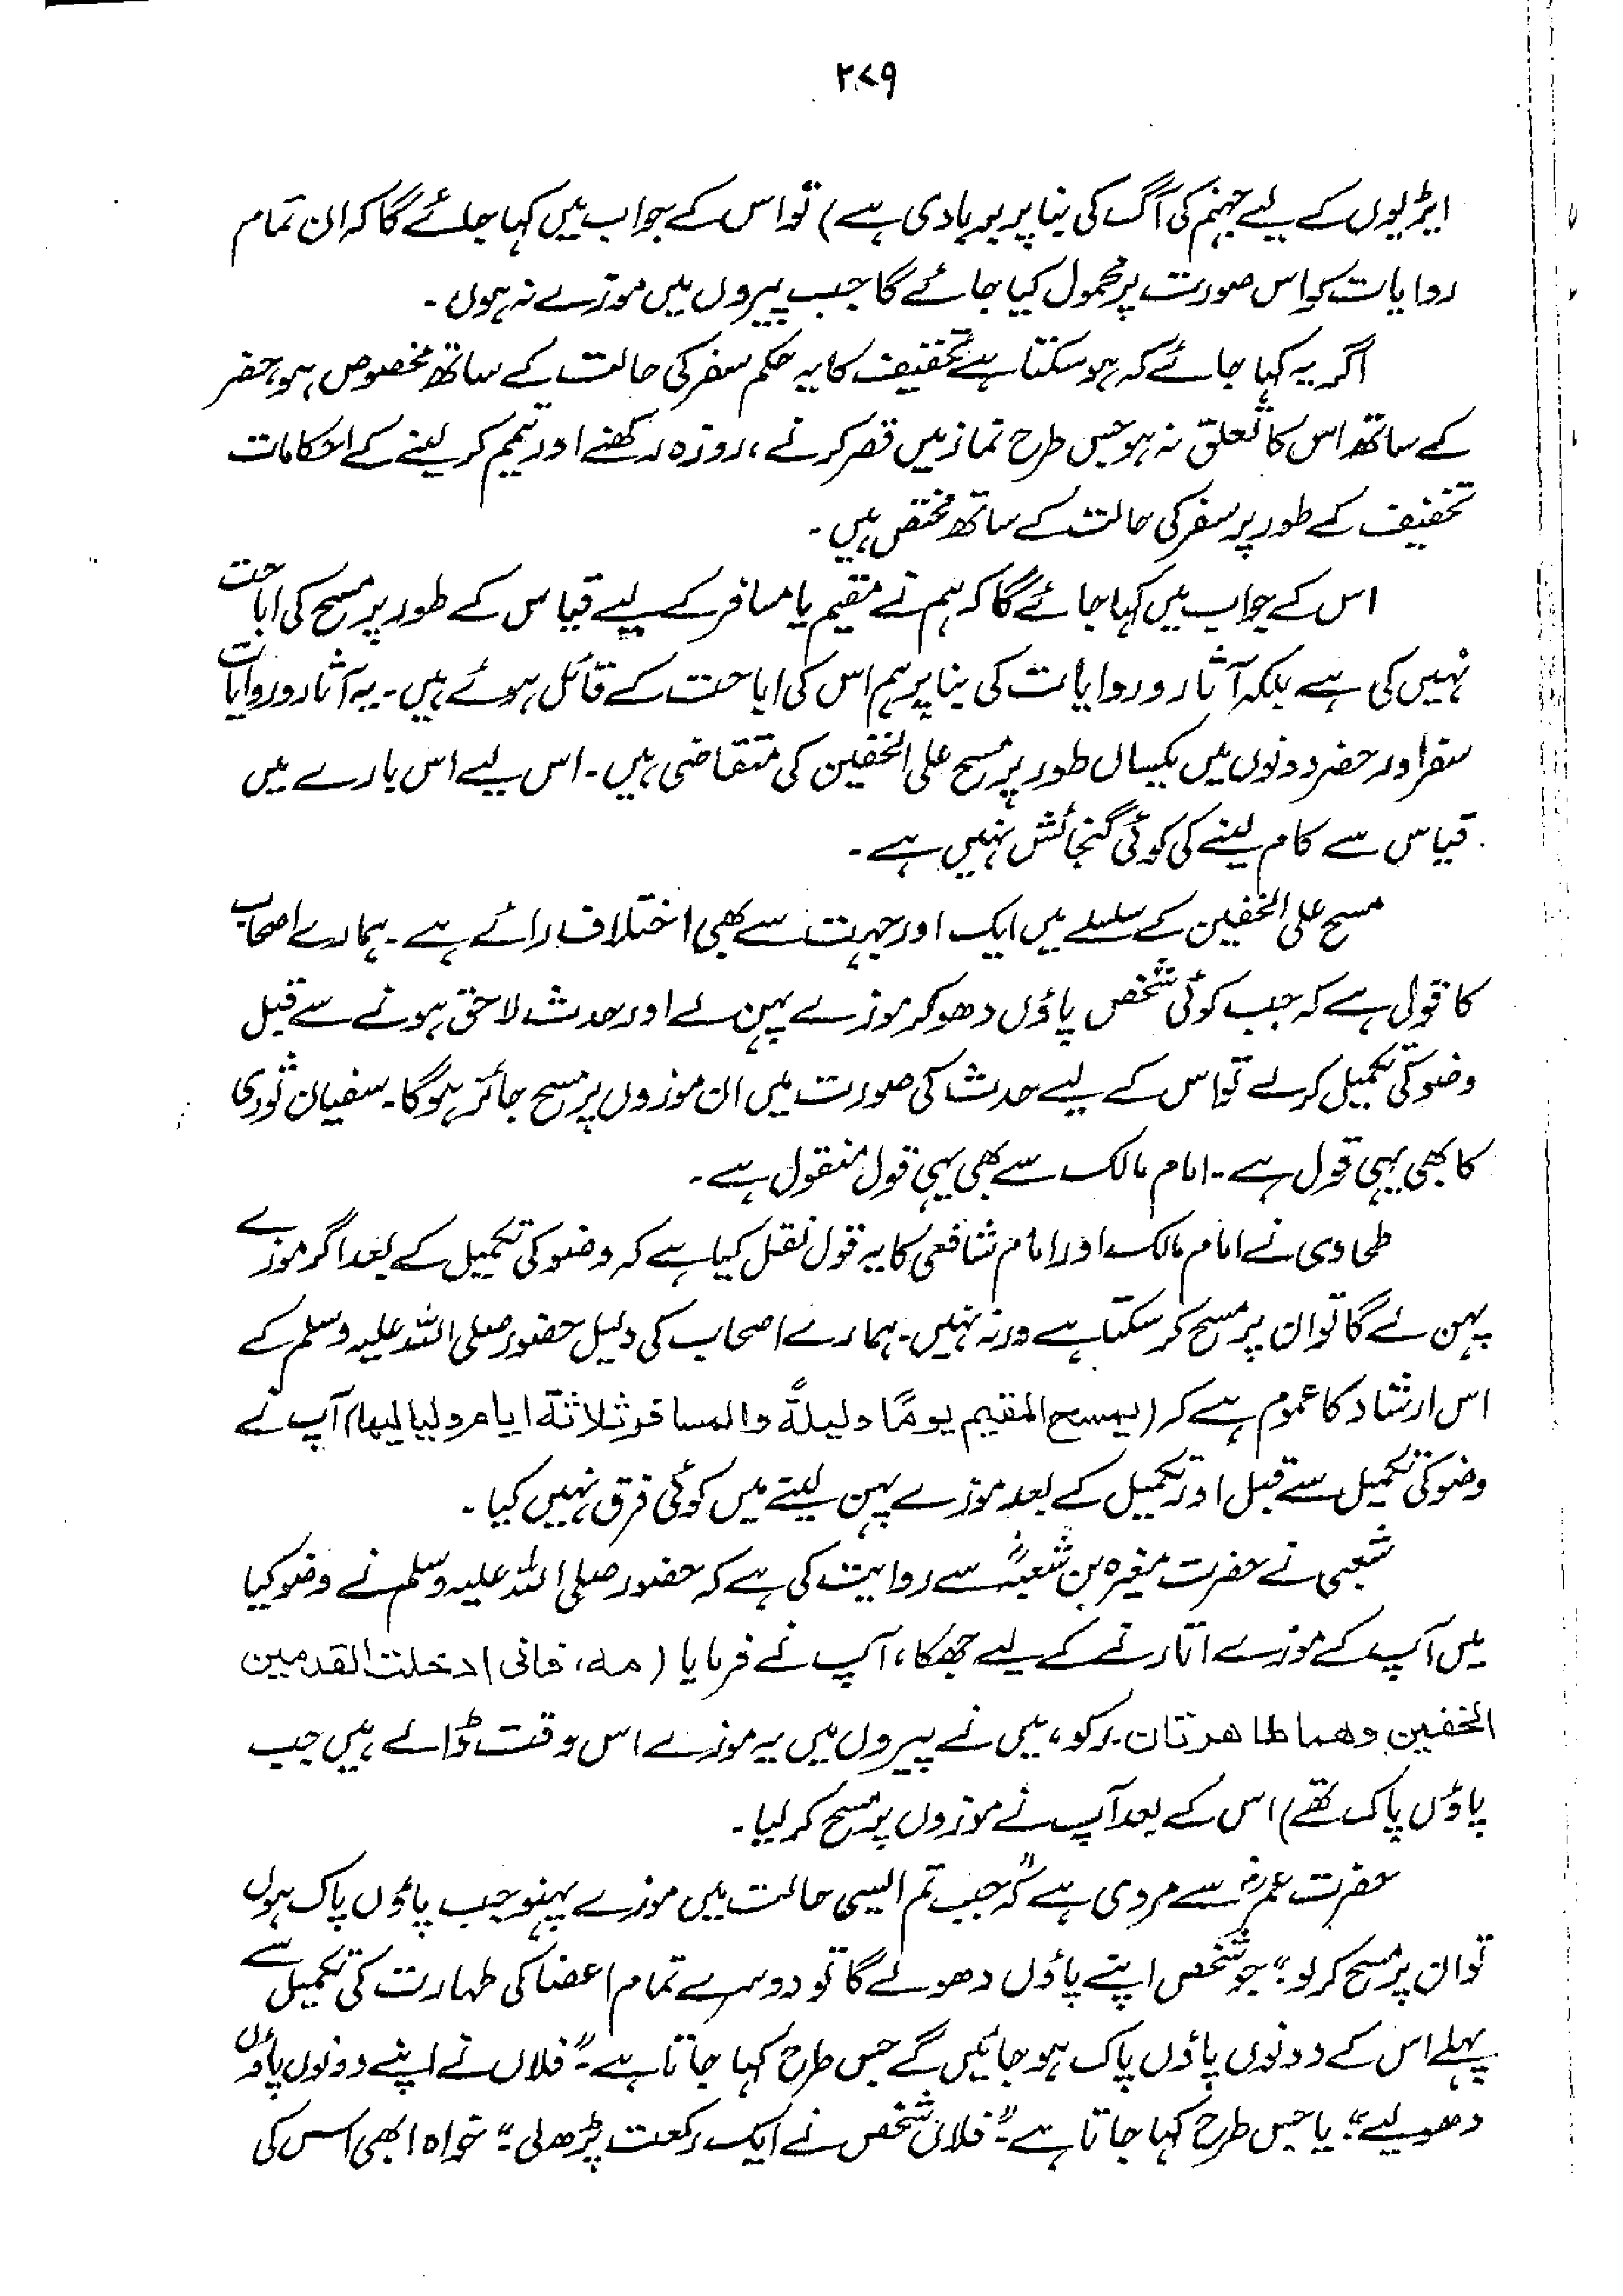 ۳۷۹
ایڑیوں کے لیے جہنم کی آگ کی بنا پر بربادی ہے) تو اس کے جواب میں کہا جائے گا کہ ان تمام
روایات کو اس صورت پر محمول کیا جائے گا جب پیروں میں موزے نہ ہوں۔
اگر یہ کہا جائے کہ ہو سکتا ہے تخفیف کا یہ حکم سفر کی حالت کے ساتھ مخصوص ہو، حضر
کے ساتھ اس کا تعلق نہ ہو جس طرح نماز میں قصر کرنے، روزہ رکھنے اور تیمم کر لینے کے احکامات
تخفیف کے طور پر سفر کی حالت کے ساتھ مختص ہیں۔
اس کے جواب میں کہا جائے گا کہ ہم نے مقیم یا مسافر کے لیے قیاس کے طور پر مسح کی اباحت
نہیں کی ہے بلکہ آثار و روایات کی بنا پر ہم اس کی اباحت کے قائل ہوئے ہیں۔ یہ آثار و روایات
سفر اور حضر دونوں میں یکساں طور پر مسح علی الخفین کی متقاضی ہیں۔ اس لیے اس بارے میں
قیاس سے کام لینے کی کوئی گنجائش نہیں ہے۔
مسح علی الخفین کے سلسلے میں ایک اور جہت سے بھی اختلاف رائے ہے۔ ہمارے اصحاب
کا قول ہے کہ جب کوئی شخص پاؤں دھو کر موزے پہن لے اور حدث لاحق ہونے سے قبل
وضو کی تکمیل کرلے تو اس کے لیے حدث کی صورت میں ان موزوں پر مسح جائز ہو گا۔ سفیان ثوری
کا بھی یہی قول ہے۔ امام مالک سے بھی یہی قول منقول ہے۔
طحاوی نے امام مالک اور امام شافعی کا یہ قول نقل کیا ہے کہ وضو کی تکمیل کے بعد اگر موزے
پہن لے گا تو ان پر مسح کر سکتا ہے ورنہ نہیں۔ ہمارے اصحاب کی دلیل حضور صلی اللہ علیہ وسلم کے
اس ارشاد کا عموم ہے کہ (یمسح المقیم یومًا ولیلۃً والمسافر ثلاثۃ ایام ولیالیھا) آپ نے
وضو کی تکمیل سے قبل اور تکمیل کے بعد موزے پہن لینے میں کوئی فرق نہیں کیا۔
شعبی نے حضرت مغیرہ بن شعبہؓ سے روایت کی ہے کہ حضور صلی اللہ علیہ وسلم نے وضو کیا
میں آپ کے موزے اتارنے کے لیے جھکا، آپ نے فرمایا (مہ، فانی ادخلت القدمین
الخفین وھما طاھرتان۔ رکو، میں نے پیروں میں یہ موزے اس وقت ڈالے ہیں جب
پاؤں پاک تھے) اس کے بعد آپ نے موزوں پر مسح کر لیا۔
حضرت عمرؓ سے مروی ہے کہ "جب تم ایسی حالت میں موزے پہنو جب پاؤں پاک ہوں
تو ان پر مسح کر لو" جو شخص اپنے پاؤں دھولے گا تو دوسرے تمام اعضا کی طہارت کی تکمیل سے
پہلے اس کے دونوں پاؤں پاک ہو جائیں گے جس طرح کہا جاتا ہے۔ "فلاں نے اپنے دونوں پاؤں
دھولیے" یا جس طرح کہا جاتا ہے۔ "فلاں شخص نے ایک رکعت پڑھ لی" خواہ ابھی اس کی